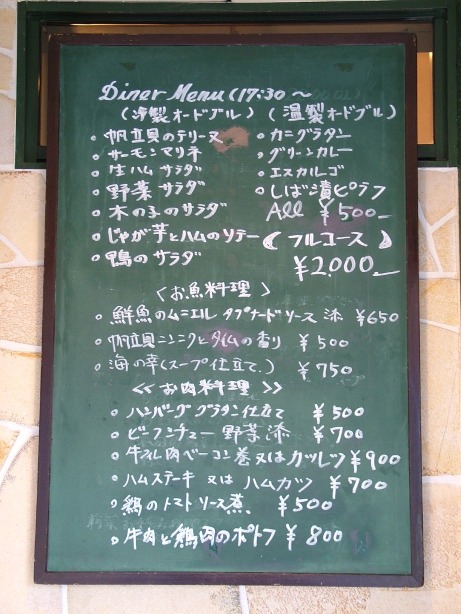 Diner Menu (17:30~
(冷製オードブル) (温製オードブル)
。帆立貝のテリーヌ 。カニグラタン
。サーモンマリネ 。グリーンカレー
。生ハム サラダ 。エスカルゴ
。野菜 サラダ 。しば漬ピラフ
。木の子のサラダ All ¥500-
。じゃが芋とハムのソテー (フルコース)
。鴨のサラダ ¥2,000-
<お魚料理>
。鮮魚のムニエル タプナードソース 添 ¥650
。帆立貝ニンニクとタイムの香り ¥500
。海の幸(スープ仕立て.) ¥750
<<お肉料理>>
。ハンバーグ グラタン仕立て ¥500
。ビーフシチュー 野菜 添 ¥700
。牛フィレ肉ベーコン巻又はカツレツ ¥900
。ハムステーキ 又は ハムカツ ¥700
。鶏のトマトソース煮. ¥500
。牛肉と鶏肉のポトフ ¥800